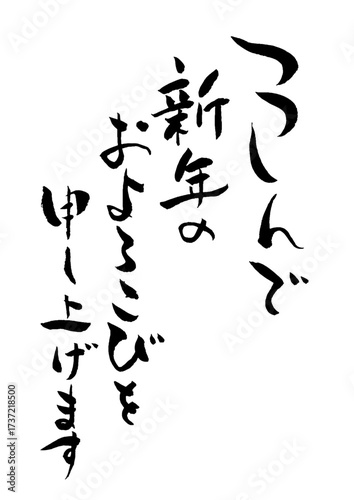 つつしんで
新年の
およろこびを
申し上げます
Adobe Stock | #1737218500
Adobe Stock